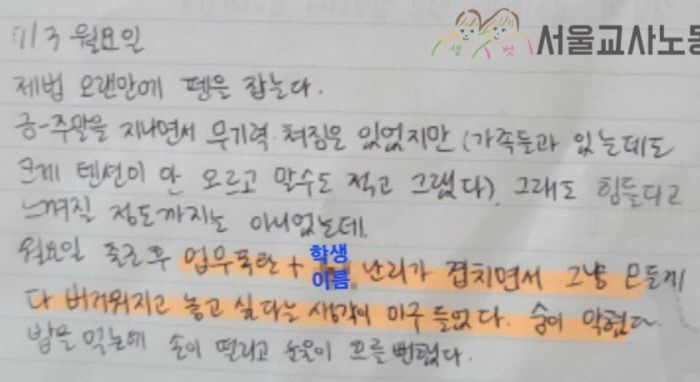 서울교사노동
샘 벗
7/3 월요일
제법 오랜만에 펜을 잡는다.
금-주말을 지나면서 무기력 처짐은 있었지만 (가족들과 있는데도
크게 텐션이 안 오르고 말수도 적고 그랬다), 그래도 힘들다고
느껴질 정도까지는 아니었는데,
월요일 출근 후 업무폭탄 + 학생 이름 난리가 겹치면서 그냥 모든게
다 버거워지고 놓고 싶다는 생각이 마구 들었다. 숨이 막혔다.
밥을 먹는데 손이 떨리고 눈물이 흐를 뻔했다.